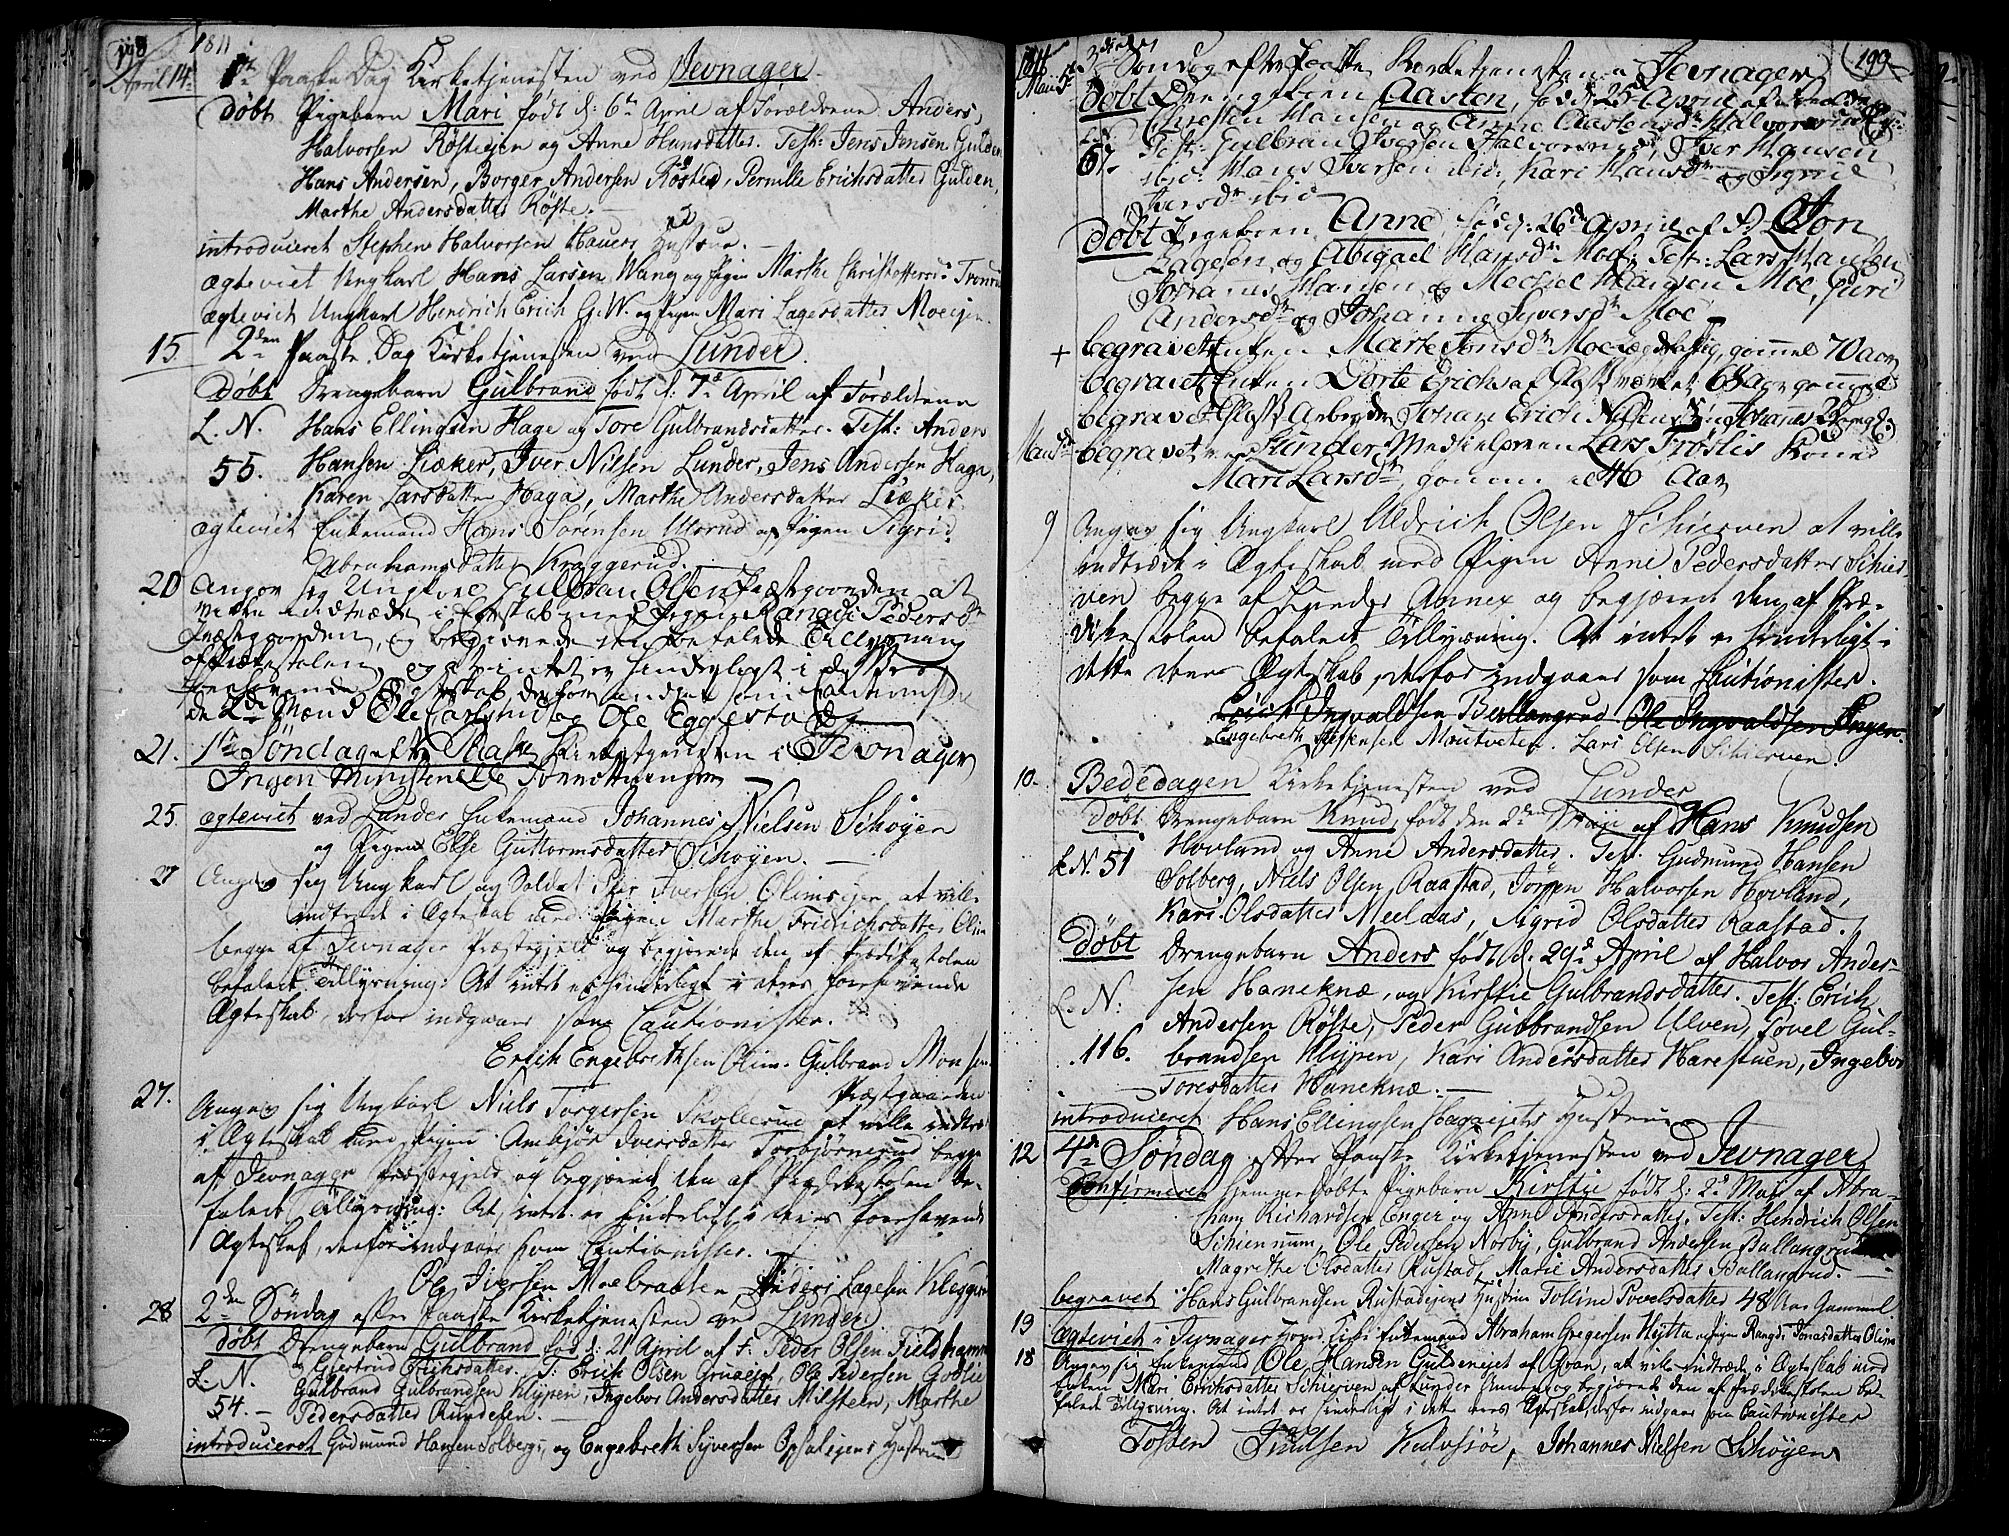 198
1811
April 14. 1ste Paaske Dag Kirketjenesten ved Jevnager
døbt Pigebarn Mari født d: 6te April af Forældrene Anders
Halvorsen Røsteien og Anne Hansdatter. Test: Jens Jensen Gulden
Hans Andersen, Borger Andersen Røsted, Pernille Erichsdatter Gulden,
Marthe Andersdatter Røste.
introduceret Stephen Halvorsen Hauers Hustrue.
ægteviet Ungkarl Hans Larsen Wang og Pigen Marthe Christoffersd:
ægteviet Ungkarl Hendrich Erich G.W. og Pigen Mari Lagesdatter Moeejer.
15. 2den Paaske Dag Kirketjenesten ved Lunder.
døbt Drengebarn Gulbrand født d: 7de April af Forældrene
L. N. Hans Ellingsen Hage og Tore Gulbrandsdatter. Test: Anders
55. Hansen Liæker, Iver Nilsen Lunder, Jens Andersen Haga,
Karen Larsdatter Haga, Marthe Andersdatter Liæker
ægteviet Enkemand Hans Sørensen Ulsrud og Pigen Sigrid
Abrahamsdatter Kraggerud.
20 Angav sig Ungkarl Gulbran Olsen Præstgaarden at
ville indtræde i Egteskab med Pigen Rangdi Pedersdr
Præstgaarden, og begierede den befalede Tillysning
af Prækestolen, og at intet er hinderligt i dette deres
forehavende Egteskab, derfor indgaar som Cautionister
de 2de Mænd Ole Carlsrud og Ole Eggestad
21. 1ste Søndag efter Paaske Kirketjenesten i Jevnager
Ingen Ministerielle Forretninger
25. ægteviet ved Lunder Enkemand Johannes Nielsen Schøyen
og Pigen Else Guttormsdatter Schøyen.
27 Angav sig Ungkarl og Soldat Peer Iversen Olimseier at ville
indtræde i Ægteskab med Pigen Marthe Fridrichsdatter Olim
begge af Jevnager Præstegjeld og begjærede den af Prædikestolen
befalede Tillysning: At intet er hinderligt i deres forehavende
Ægteskab, derfor indgaaer som Cautionister.
Erich Engebrethsen Olim. Gulbrand Monsen
Præstgaarden
27. Angav sig Ungkarl Niels Torgersen Skollerud at ville indtræde
i Ægteskab med Pigen Ambjør Iversdatter Torbjørnsrud begge
af Jevnager Præstegjeld og begjærede den af Prædikestolen be-
falede Tillysning: At intet er hinderligt i deres forehavende
Ægteskab, derfor indgaaer som Cautionister.
Ole Iversen Moebraaten Anders Lagesen Kleggerud
28 2den Søndag efter Paaske Kirketjenesten ved Lunder.
døbt Drengebarn Gulbrand fød d: 21 April af F: Peder Olsen Fieldhammer
L. N. og Giertrud Erichsdatter. T: Erich Olsen Gruaejet, Ole Pedersen Godlie
Gulbrand Gulbrandsen Klypen, Ingebor Andersdatter Milsteen, Marthe
54. Pedersdatter Rundelen.
introduceret Gudmund Hansen Solbergs, og Engebreth Syversen Opsaliegens Hustruer
199
1811
Maii 5te 3die Søndag efter Paaske Kirketjenesten i Jevnager
døbt Drengebarn Aasten, fød d: 25de April af Forældrene
Christen Hansen og Anne Aastensdr Halvorsrud
67. Test: Gulbran Iversen Halvorsrud, Iver Hansen
ibid: Hans Iversen ibid: Kari Hansdr og Sigrie
Iversdr ibid
døbt Pigeboen Anne, fød d: 26de April af F. Lon
Lagesen og Abigael Hansdr Moe, Test: Lars Hansen
Johannes Hansen og Mechiel Hansen Moe, Guri
Andersdr og Johanne Syversdr Moe
+ begravet Enken Marte Jonsdr Moe Lægdslæstig, gammel 70 aar
begravet Enken Dorte Erichs af Glassværket 68 aar gammel
begravet Glass Arbeyder Johan Erich Nilsens Søn Johanes
begravet ved Lunder Medhielperen Lars Frøslis Koned
Mari Larsdr, gammel 46 Aar
9 Angav sig Ungkarl Aldrich Olsen Schierven at ville
indtræde i Ægteskab med Pigen Anne Pedersdatter Schier-
ven begge af Lunder Annex og begjæret den af Præ-
dikestolen befalede Tillysning. At intet er hinderligt i
dette deres Ægteskab, derfor indgaaer som Cautionister.
Erich Ingvaldsen Ballangrud Ole Ingvaldsen Enger.
Engebreth Steffensen Moutveten. Lars Olsen Schierven.
10. Bededagen Kirketjenesten ved Lunder
døbt Drengebarn Knud, født den 2den Maji af Hans Knudsen
L. N. 51 Hovland og Anne Andersdatter. Test. Gudmund Hansen
Solberg, Niels Olsen Raastad, Jørgen Halvorsen Hovland,
Kari Olsdatter Meelaas, Sigrid Olsdatter Raastad.
døbt Drengebarn Anders født d: 29de April af Halvor Ander-
L. N. sen Haneknæ, og Kirstie Gulbrandsdatter. Test: Erich
Andersen Røste, Peder Gulbrandsen Ulven, Povel Gul-
116. brandsen Klypen, Kari Andersdatter Harestuen, Ingebor
Toresdatter Haneknæ.
introduceret Hans Ellingsen Hagaejets Hustrue
12 4de Søndag efter Paaske Kirketjenesten ved Jevnager
Confirmeret hjemmedøbte Pigebarn Kirstie født d: 2de Maii af Abra-
ham Richardsen Enger og Anne Andersdatter. Test: Hendrich Olsen
Schiennum, Ole Pedersen Norby, Gulbrand Andersen Ballangrud
Magrethe Olsdatter Rustad, Marie Andersdatter Ballangrud.
begravet Hans Gulbrandsen Rustadejens Hustrue Folline Povelsdatter 48 Aar Gammel
19 ægteviet i Jevnager Enkemand Abraham Gregersen Hytta og Pigen Rangdi Jonasdatter Olim
18 Angav sig Enkemand Ole Hansen Guldeneiet af Gran, at ville indtræde i Ægteskab med
Enken Mari Erichsdatter Schierven af Lunder Annex og begjærede den af Prædikestolen be-
falede Tillysning. At intet er hinderligt i dette deres Ægteskab, derfor indgaaer som Cautionister
Tosten Knudsen Kulvsjøe, Johannes Nielsen Schøyen